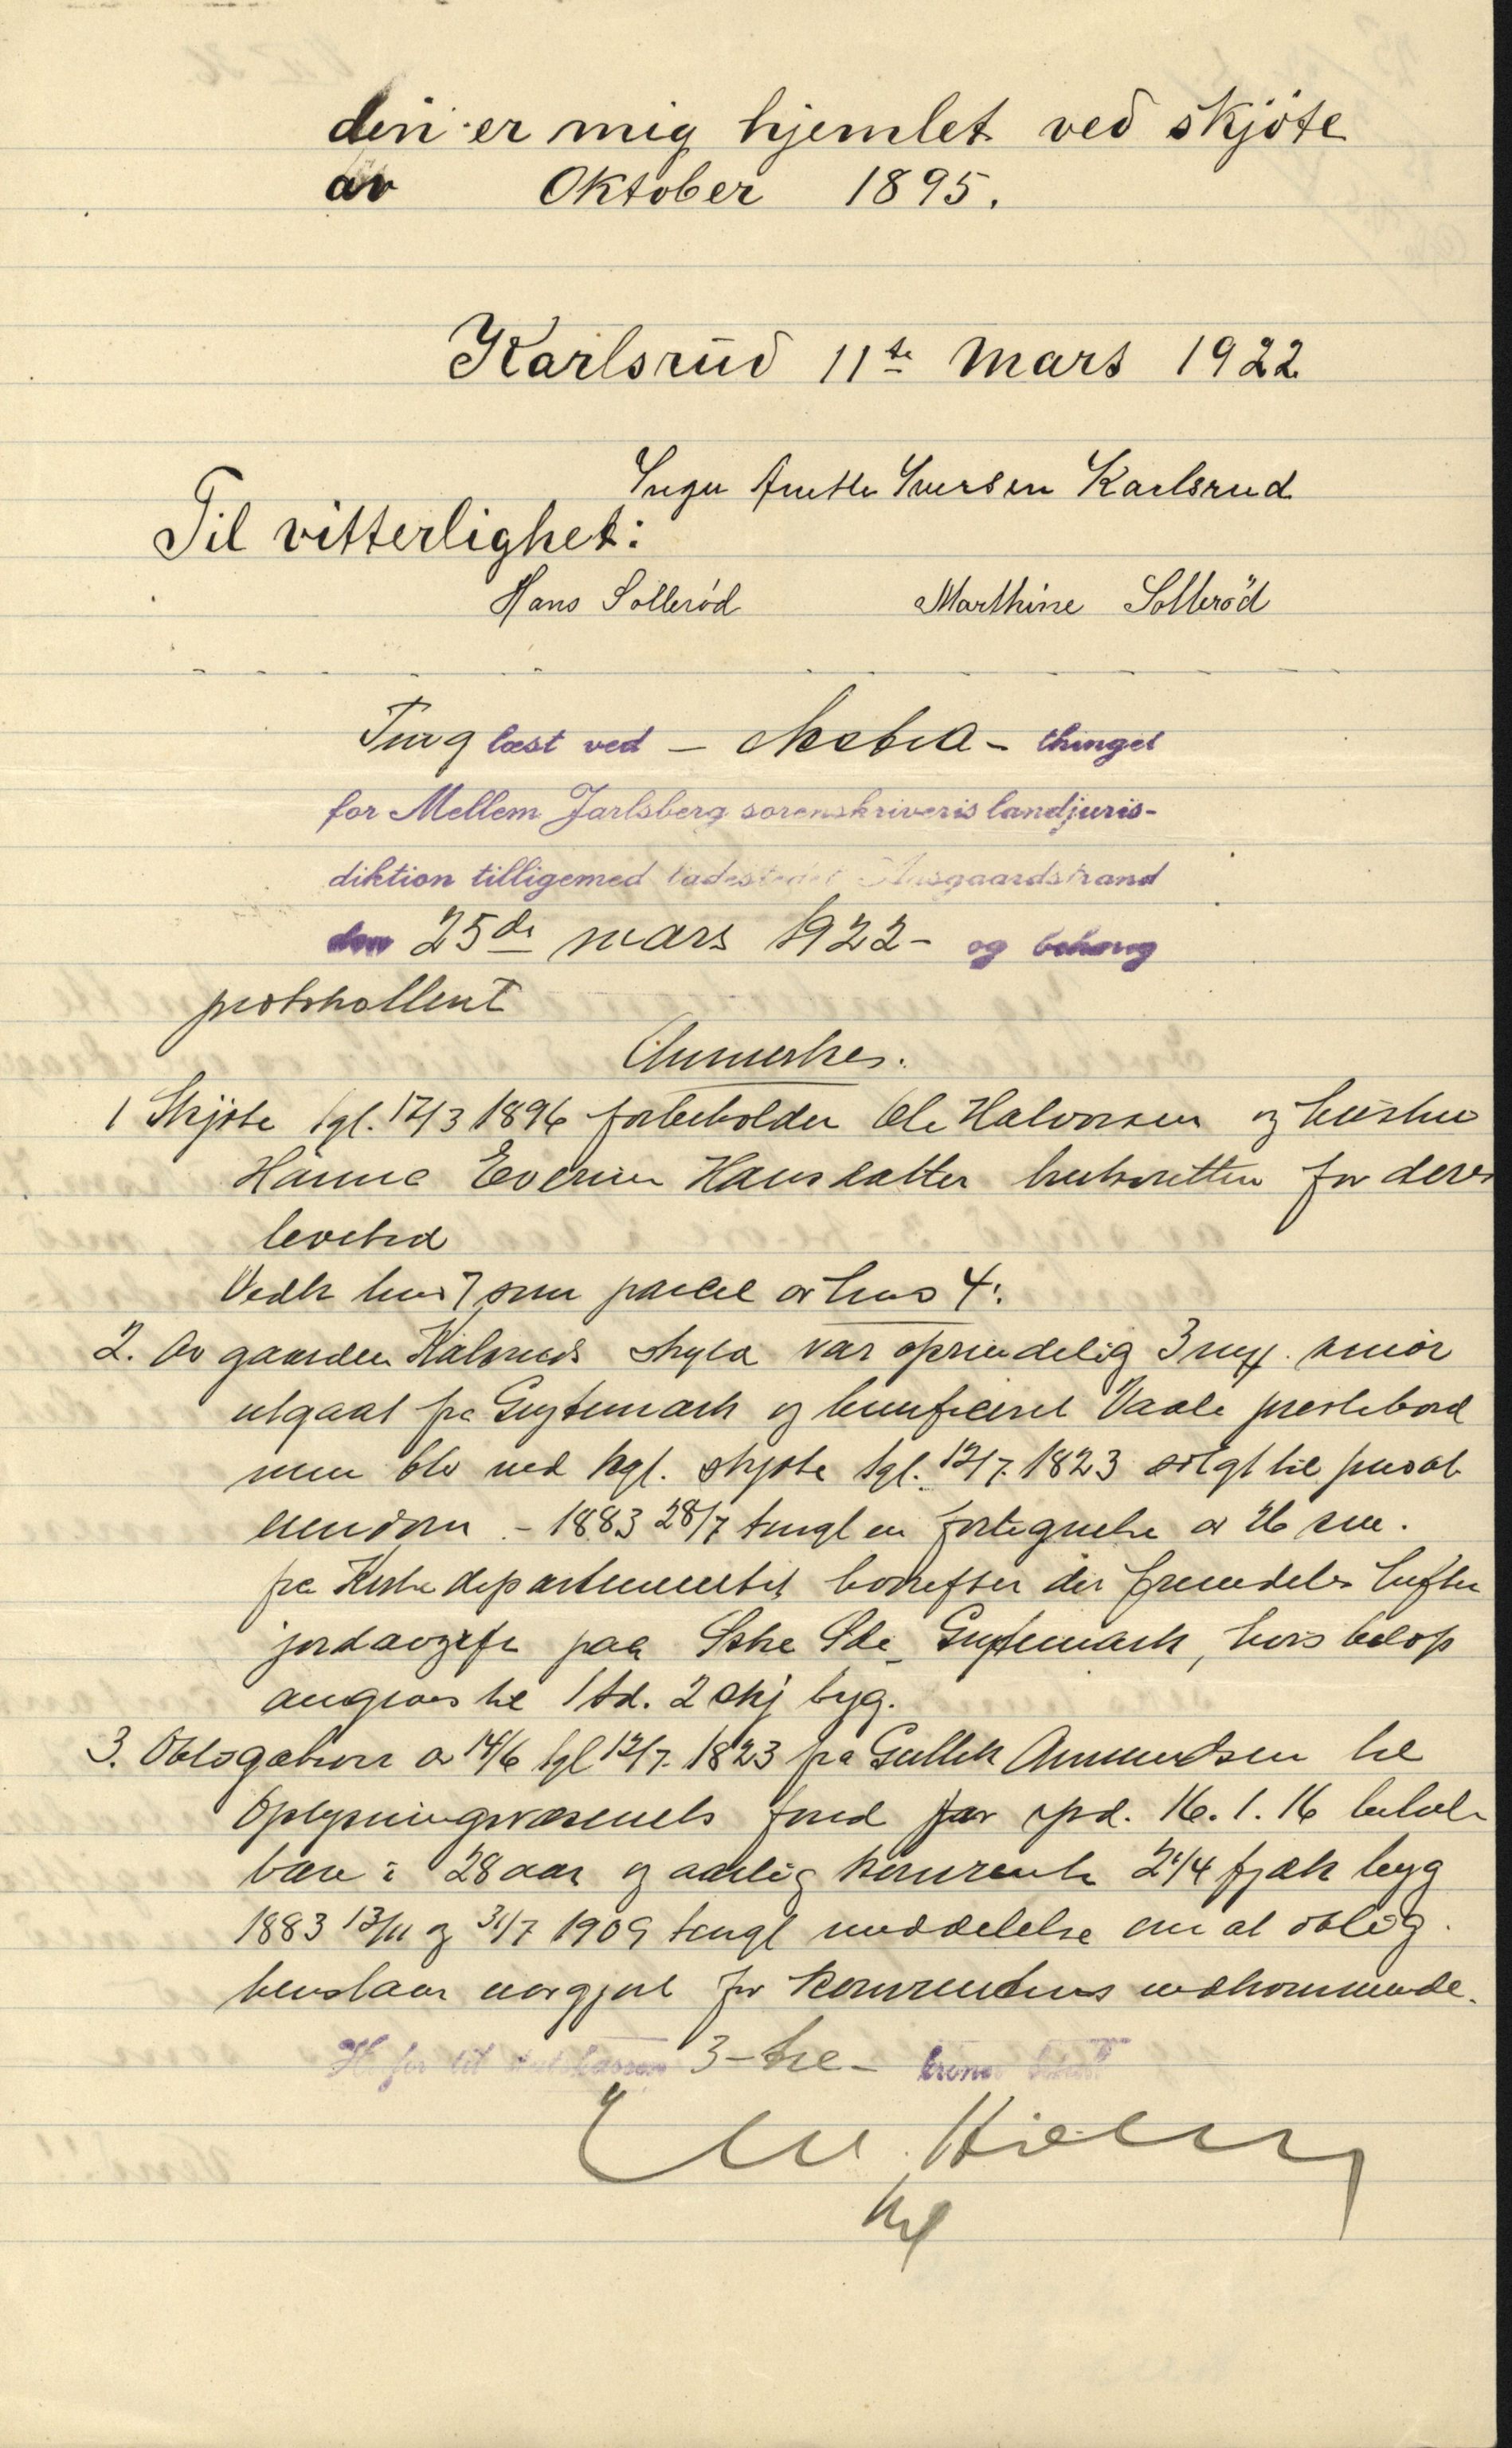 den er mig hjemlet ved skjöte
av Oktober 1895.
Karlsrud 11te Mars 1922
Inga Anette Iversen Karlsrud
Til vitterlighet:
Hans Sollerød Marthine Solleröd
Ting læst ved - extra - thinget
for Mellem Jarlsberg sorenskriveris landjuris-
diktion tilligemed ladestedet Aasgaardstrand
den 25de mars 1922 - og behørig
protokollert
Anmerkes.
1 Skjøte tgl. 12/3 1896 forbeholder Ole Halvorsen og hustru
Hanna Everine Hansdatter bruksretten for deres
levetid
Vedk bno 7 som parcel av bno 4.
2. Av gaarden skyld var oprindelig 3 smør
utgaat fra Grytemark og beneficeret Vaale prestebord
men blev ved kgl. skjøte tgl. 12/7. 1823 solgt til privat
eiendom - 1883 28/7 tingl en fortegnelse av 26 s.m.
fra Kirkedepartementet hvorefter der fremdeles hefter
jordavgift paa Grytemark, hvis beløp
angives til 1 td. 2 skj byg.
3. Obligation av 14/6 tgl 12/7. 1823 fra Gullik Amundsen til
Oplysningsvæsenets fond for spd. 16. 1. 16 betal-
bare i 28 aar og aarlig kornrente 2 1/4 fjdk byg
1883 13/11 og 31/7 1909 tingl meddelelse om at oblig.
henstaar uopgjort for kornrentens vedkommende.
Herfor til statskassen 3 - tre - kroner betalt